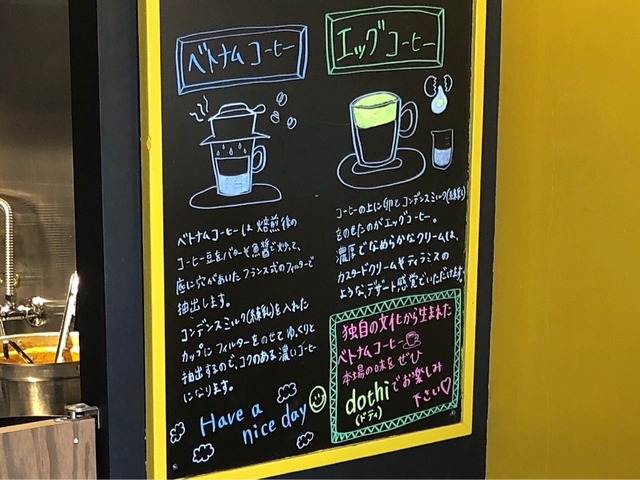 ベトナムコーヒー
ベトナムコーヒーは焙煎後の
コーヒー豆をバターや魚醤で炒って、
底に穴があいたフランス式のフィルターで
抽出します。
コンデンスミルク(練乳)を入れた
カップにフィルターをのせてゆっくりと
抽出するので、コクのある濃いコーヒー
になります。
Have a
nice day
エッグコーヒー
コーヒーの上に卵とコンデンスミルク(練乳)
をのせたのがエッグコーヒー。
濃厚でなめらかなクリームは、
カスタードクリームやティラミスの
ような、デザート感覚でいただけます。
独自の文化から生まれた
ベトナムコーヒー
本場の味をぜひ
dothiでお楽しみ
(ドティ) 下さい♡